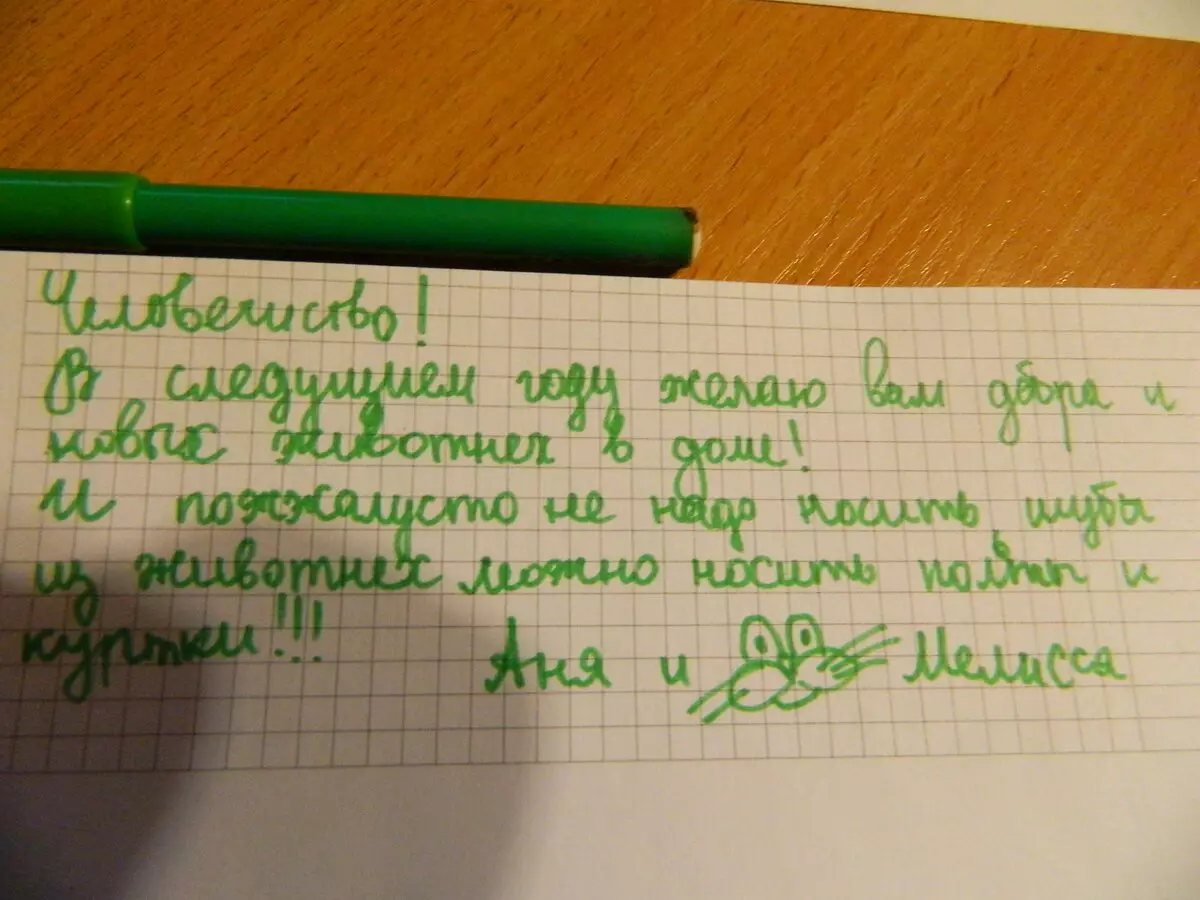 Человечиство!
В следущием году желаю вам дбора и
новых животнех в доме!
И пожжалусто не надо носить шубы
из животнех можно носить полты и
куртки!!!
Аня и Мелисса